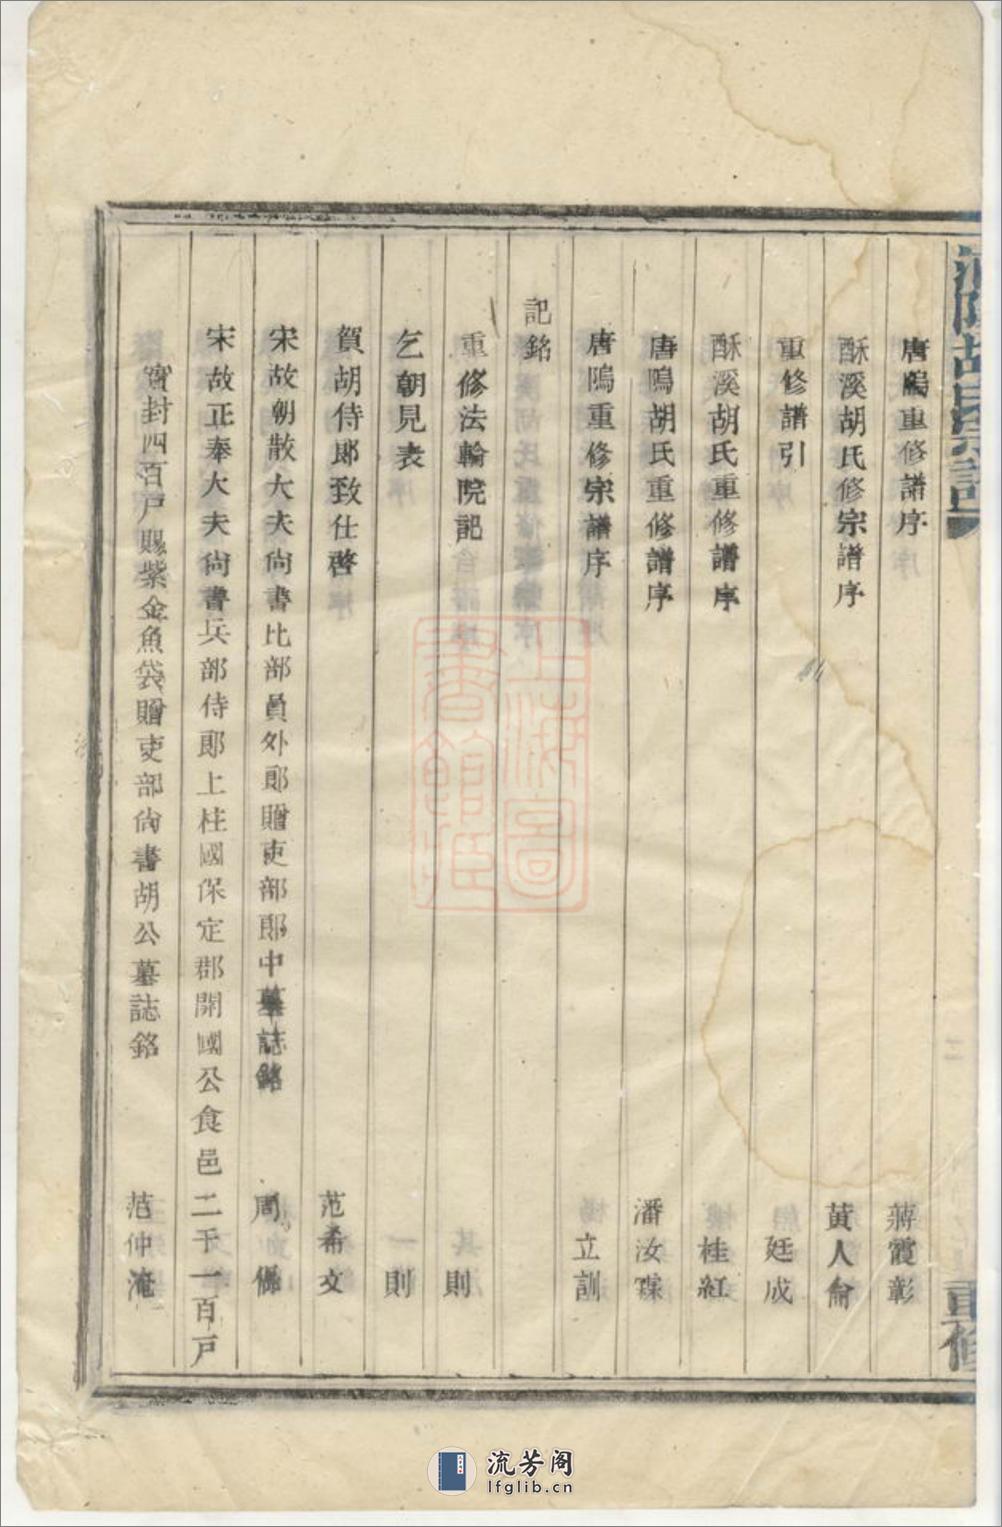 唐鄔重修譜序　蔣霞彰
酥溪胡氏修宗譜序　黃人倫
重修譜引　廷成
酥溪胡氏重修譜序　桂紅
唐鄔胡氏重修譜序　潘汝霖
唐鄔重修宗譜序　立訓
記銘
重修法輪院記　則
乞朝見表　則
賀胡侍郎致仕啓　范希文
宋故朝散大夫尙書比部員外郎贈吏部郎中墓誌銘　周
宋故正奉大夫尙書兵部侍郎上柱國保定郡開國公食邑二千一百戸
實封四百戸賜紫金魚袋贈吏部尙書胡公墓誌銘　范仲淹
胡氏宗譜
重修
上海圖書館藏
流芳阁
lfglib.cn